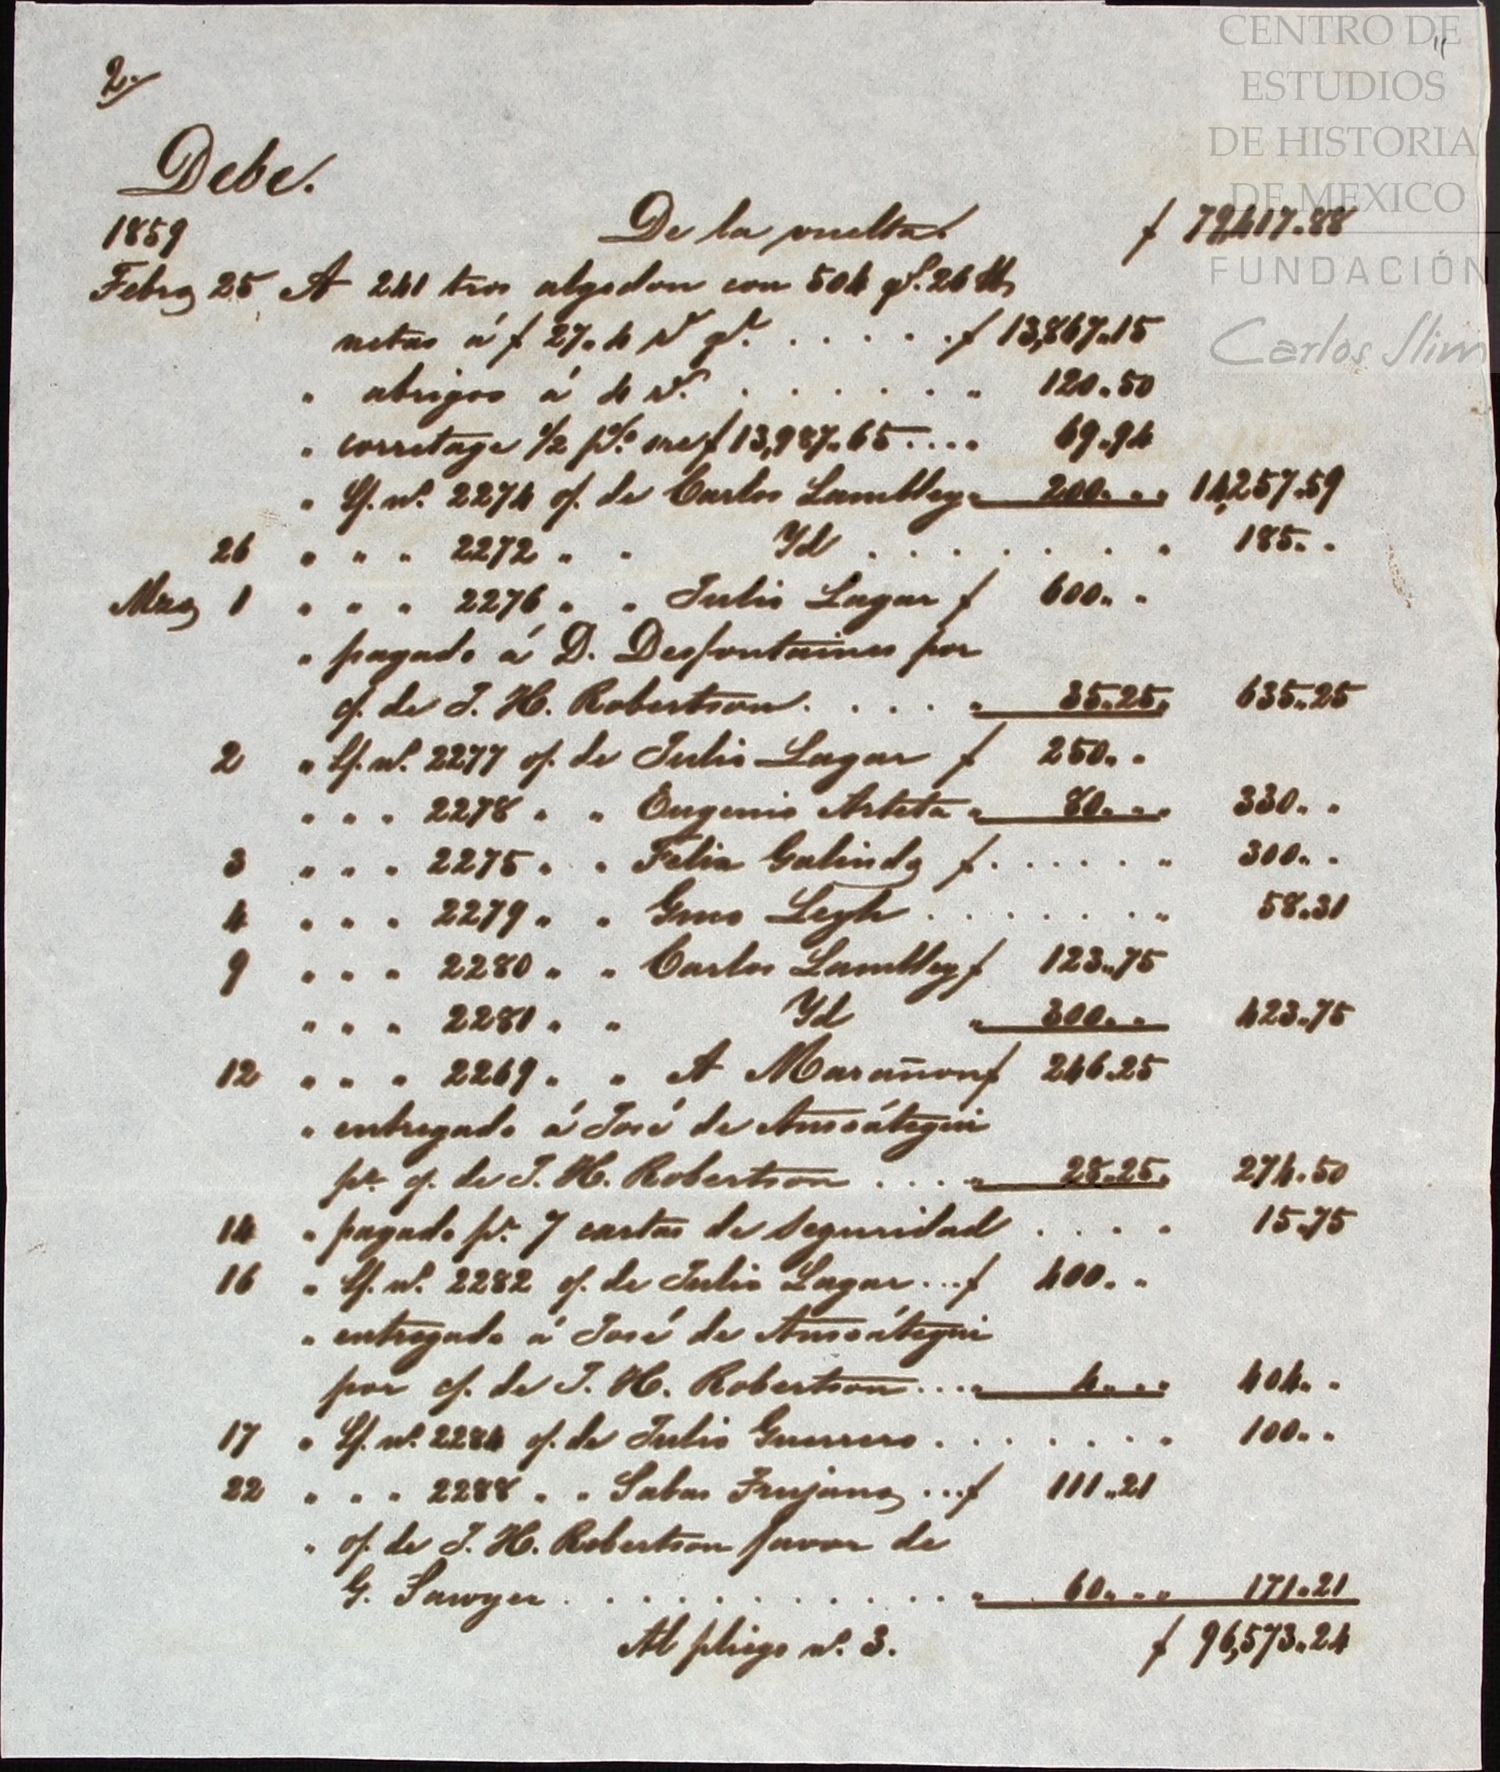 2.
"
Debe.
1859 De la vuelta $ 79,417.88
Febro 25 A 241 tros algodon con 504 qs. 26 lb
netas á $ 27.4 rs ql. . . . . . $ 13,867.15
" abrigos á 4 rs. . . . . . . " 120.50
" corretage ½ p% sre $ 13,987.65 .... 69.94
" Lf. nº. 2274 of. de Carlos Lambley " 200. . . 14,257.59
26 " " " 2272 " " Yd . . . . . . . 185. .
Mzo 1 " " " 2276 " " Julio Lagar $ 600. .
" pagado á D. Desfontaines por
of. de J. H. Robertson . . . . " 35.25. 635.25
2 " Lf. nº. 2277 of. de Julio Lagar $ 250. .
" " " 2278 " " Eugenio Arteta " 80. . . 330. .
3 " " " 2275 " " Felix Galindo $ . . . . . " 300. .
4 " " " 2279 " " Gmo Legh . . . . . . . " 58.31
9 " " " 2280 " " Carlos Lambley $ 123.75
" " " 2281 " " Yd " 300. . 423.75
12 " " " 2269 " " A Marañon $ 246.25
" entregado á José de Ansoátegui
pr. of. de J. H. Robertson . . . " 28.25. 274.50
14 " pagado pr. 7 cartas de seguridad . . . . 15.75
16 " Lf. nº. 2282 of. de Julio Lagar ... $ 400. .
" entregado á José de Ansoátegui
por of. de J. H. Robertson ... " 4. . . 404. .
17 " Lf. nº. 2284 of. de Julio Guerrero . . . . . . . 100. .
22 " " " 2288 " " Sabas Trujano ... $ 111.21
" of. de J. H. Robertson favor de
G. Sawyer . . . . . . . . . . . " 60. . . 171.21
Al pliego nº. 3. $ 96,573.24
CENTRO DE
ESTUDIOS
DE HISTORIA
DE MEXICO
FUNDACIÓN
Carlos Slim